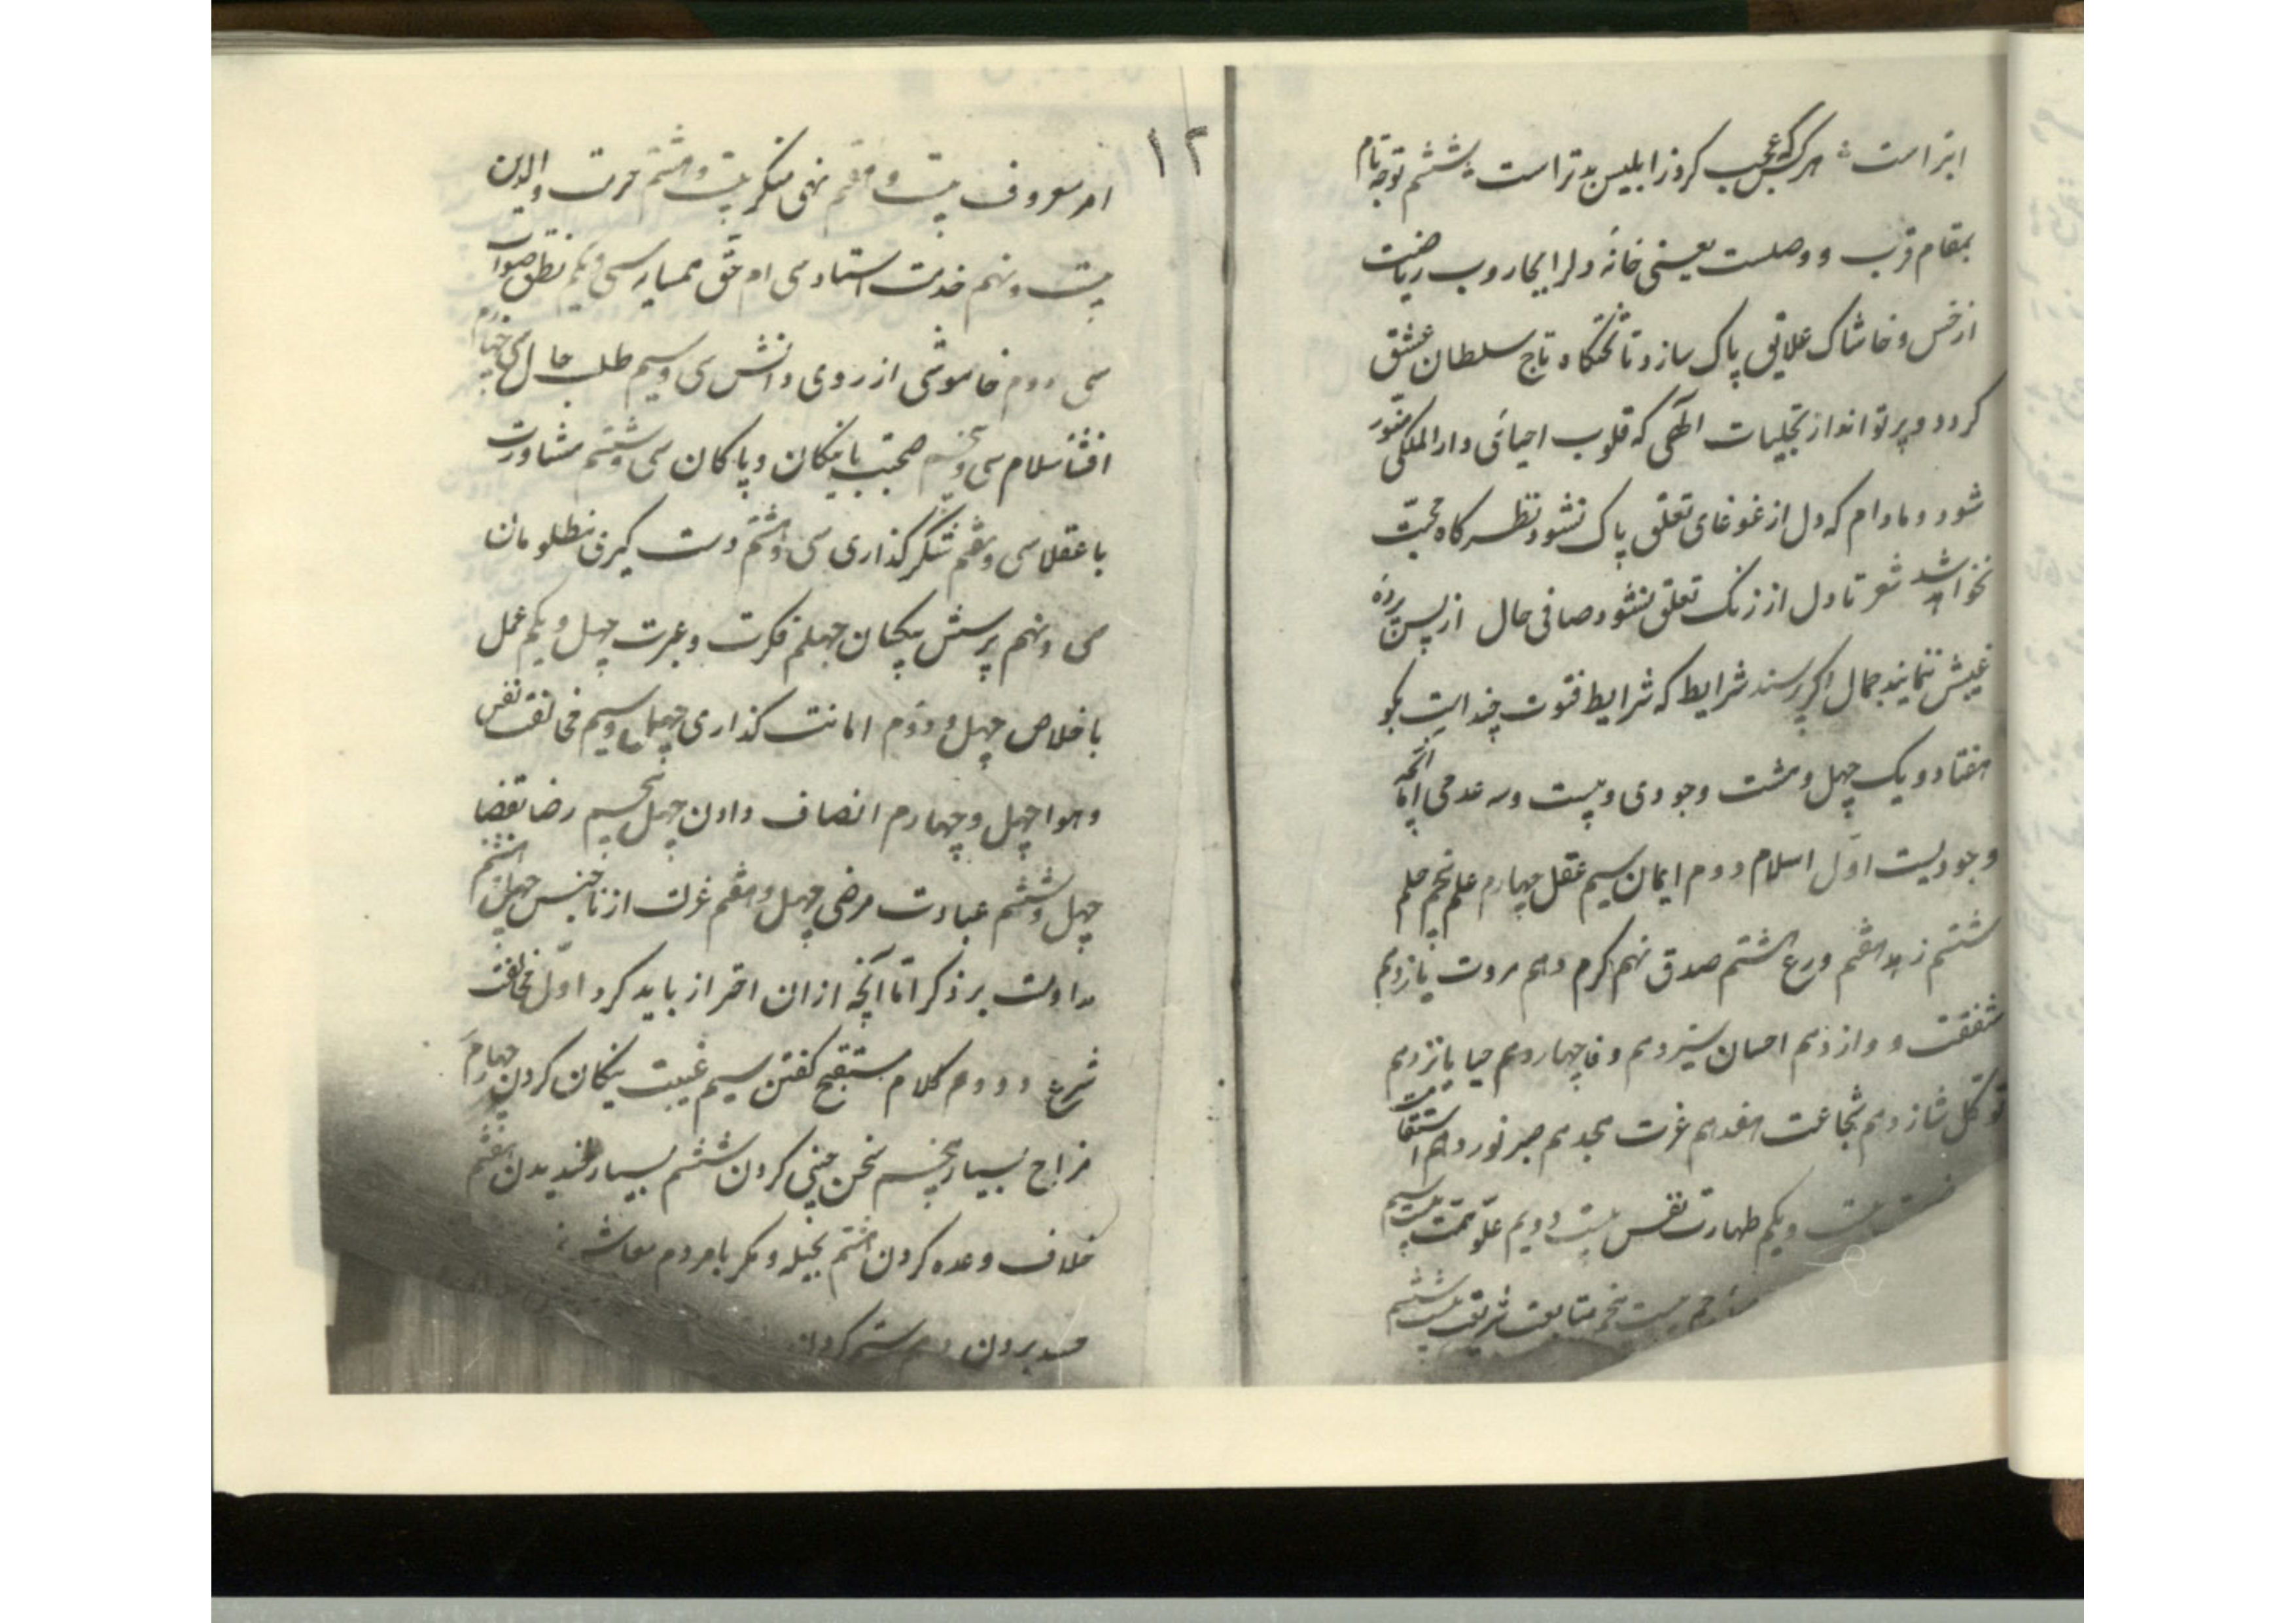 ابتر است هر که عجب کرد ز ابلیس بدتر است ششم توجه تام
بمقام قرب و وصلست یعنی خانهٔ دلرا بجاروب ریاضت
از خس و خاشاک علایق پاک سازد تا تختکاه تاج سلطان عشق
کردد و پرتو انداز تجلیات آلهی که قلوب احبائی دار الملکی منور
شود و مادام که دل از غوغای تعلق پاک نشود نظرکاه محبت
نخواهد شد شعر تا دل از زنک تعلق نشود صافی حال از پس پردهٔ
غیبش ننمایند جمال اکر پرسند شرایط که شرایط فتوت چند است بکو
هفتاد و یک چهل و هشت وجودی و بیست و سه عدمی اما آنچه
وجودیست اول اسلام دوم ایمان سیم عقل چهارم علم پنجم حلم
ششم زهد هفتم ورع هشتم صدق نهم کرم دهم مروت یازدهم
شفقت دوازدهم احسان سیزدهم وفا چهاردهم حیا پانزدهم
توکل شانزدهم شجاعت هفدهم غیرت هجدهم صبر نوزدهم استقامت
بیست ویکم طهارت نفس بیست دویم علو همت بیست سیم
بیست پنجم متابعت شریعت بیست ششم
۱۲
امر معروف بیست و هفتم نهی منکر بیست و هشتم حرمت والدین
بیست و نهم خدمت استاد سی ام حق همسایه سی ویکم نطق صواب
سی دوم خاموشی از روی دانش سی وسیم طلب حلال سی چهارم
افشاء سلام سی و پنجم صحبت با نیکان و پاکان سی وششم مشاورت
با عقلا سی وهفتم شکر کذاری سی وهشتم دست کیری مظلومان
سی ونهم پرسش بیکسان چهلم فکرت و عبرت چهل ویکم عمل
باخلاص چهل و دوم امانت کذاری چهل وسیم مخالفت نفس
و هوا چهل و چهارم انصاف دادن چهل پنجم رضا بقضا
چهل و ششم عیادت مرضی چهل و هفتم عزلت از ناجنس چهل هشتم
مداومت بر ذکر اما آنچه ازان احتراز باید کرد اول مخالفت
شرع دووم کلام مستقبح کفتن سیم غیبت نیکان کردن چهارم
مزاح بسیار پنجم سخن چینی کردن ششم بسیار خندیدن هفتم
خلاف وعده کردن هشتم بحیله و مکر با مردم معاش
حسد بردن دهم ستم کردن